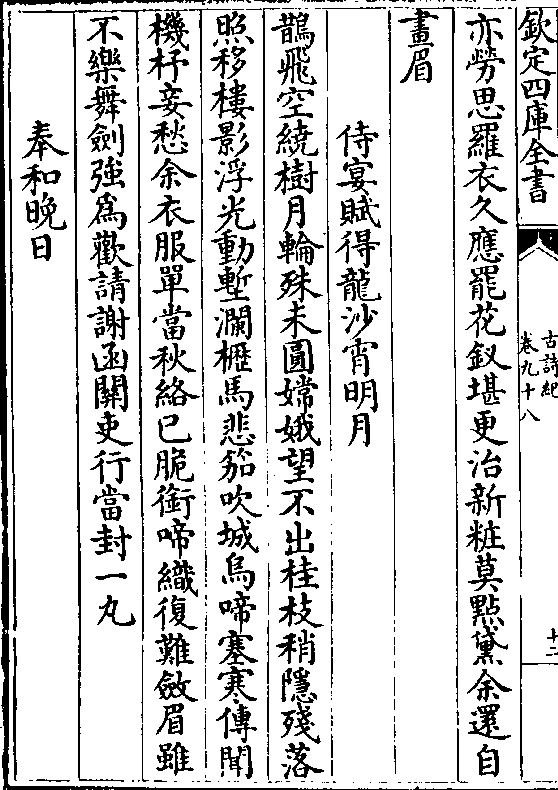 欽定四庫全書
古詩紀
卷九十八
十二
亦勞思羅衣久應罷花釵堪更治新粧莫點黛余還自
畫眉
侍宴賦得龍沙宵明月
鵲飛空繞樹月輪殊未圓嫦娥望不出桂枝稍隱殘落
照移樓影浮光動塹瀾櫪馬悲笳吹城烏啼塞寒傳聞
機杼妾愁余衣服單當秋絡已脆銜啼織復難斂眉雖
不樂舞劍強為歡請謝函關吏行當封一丸
奉和晩日